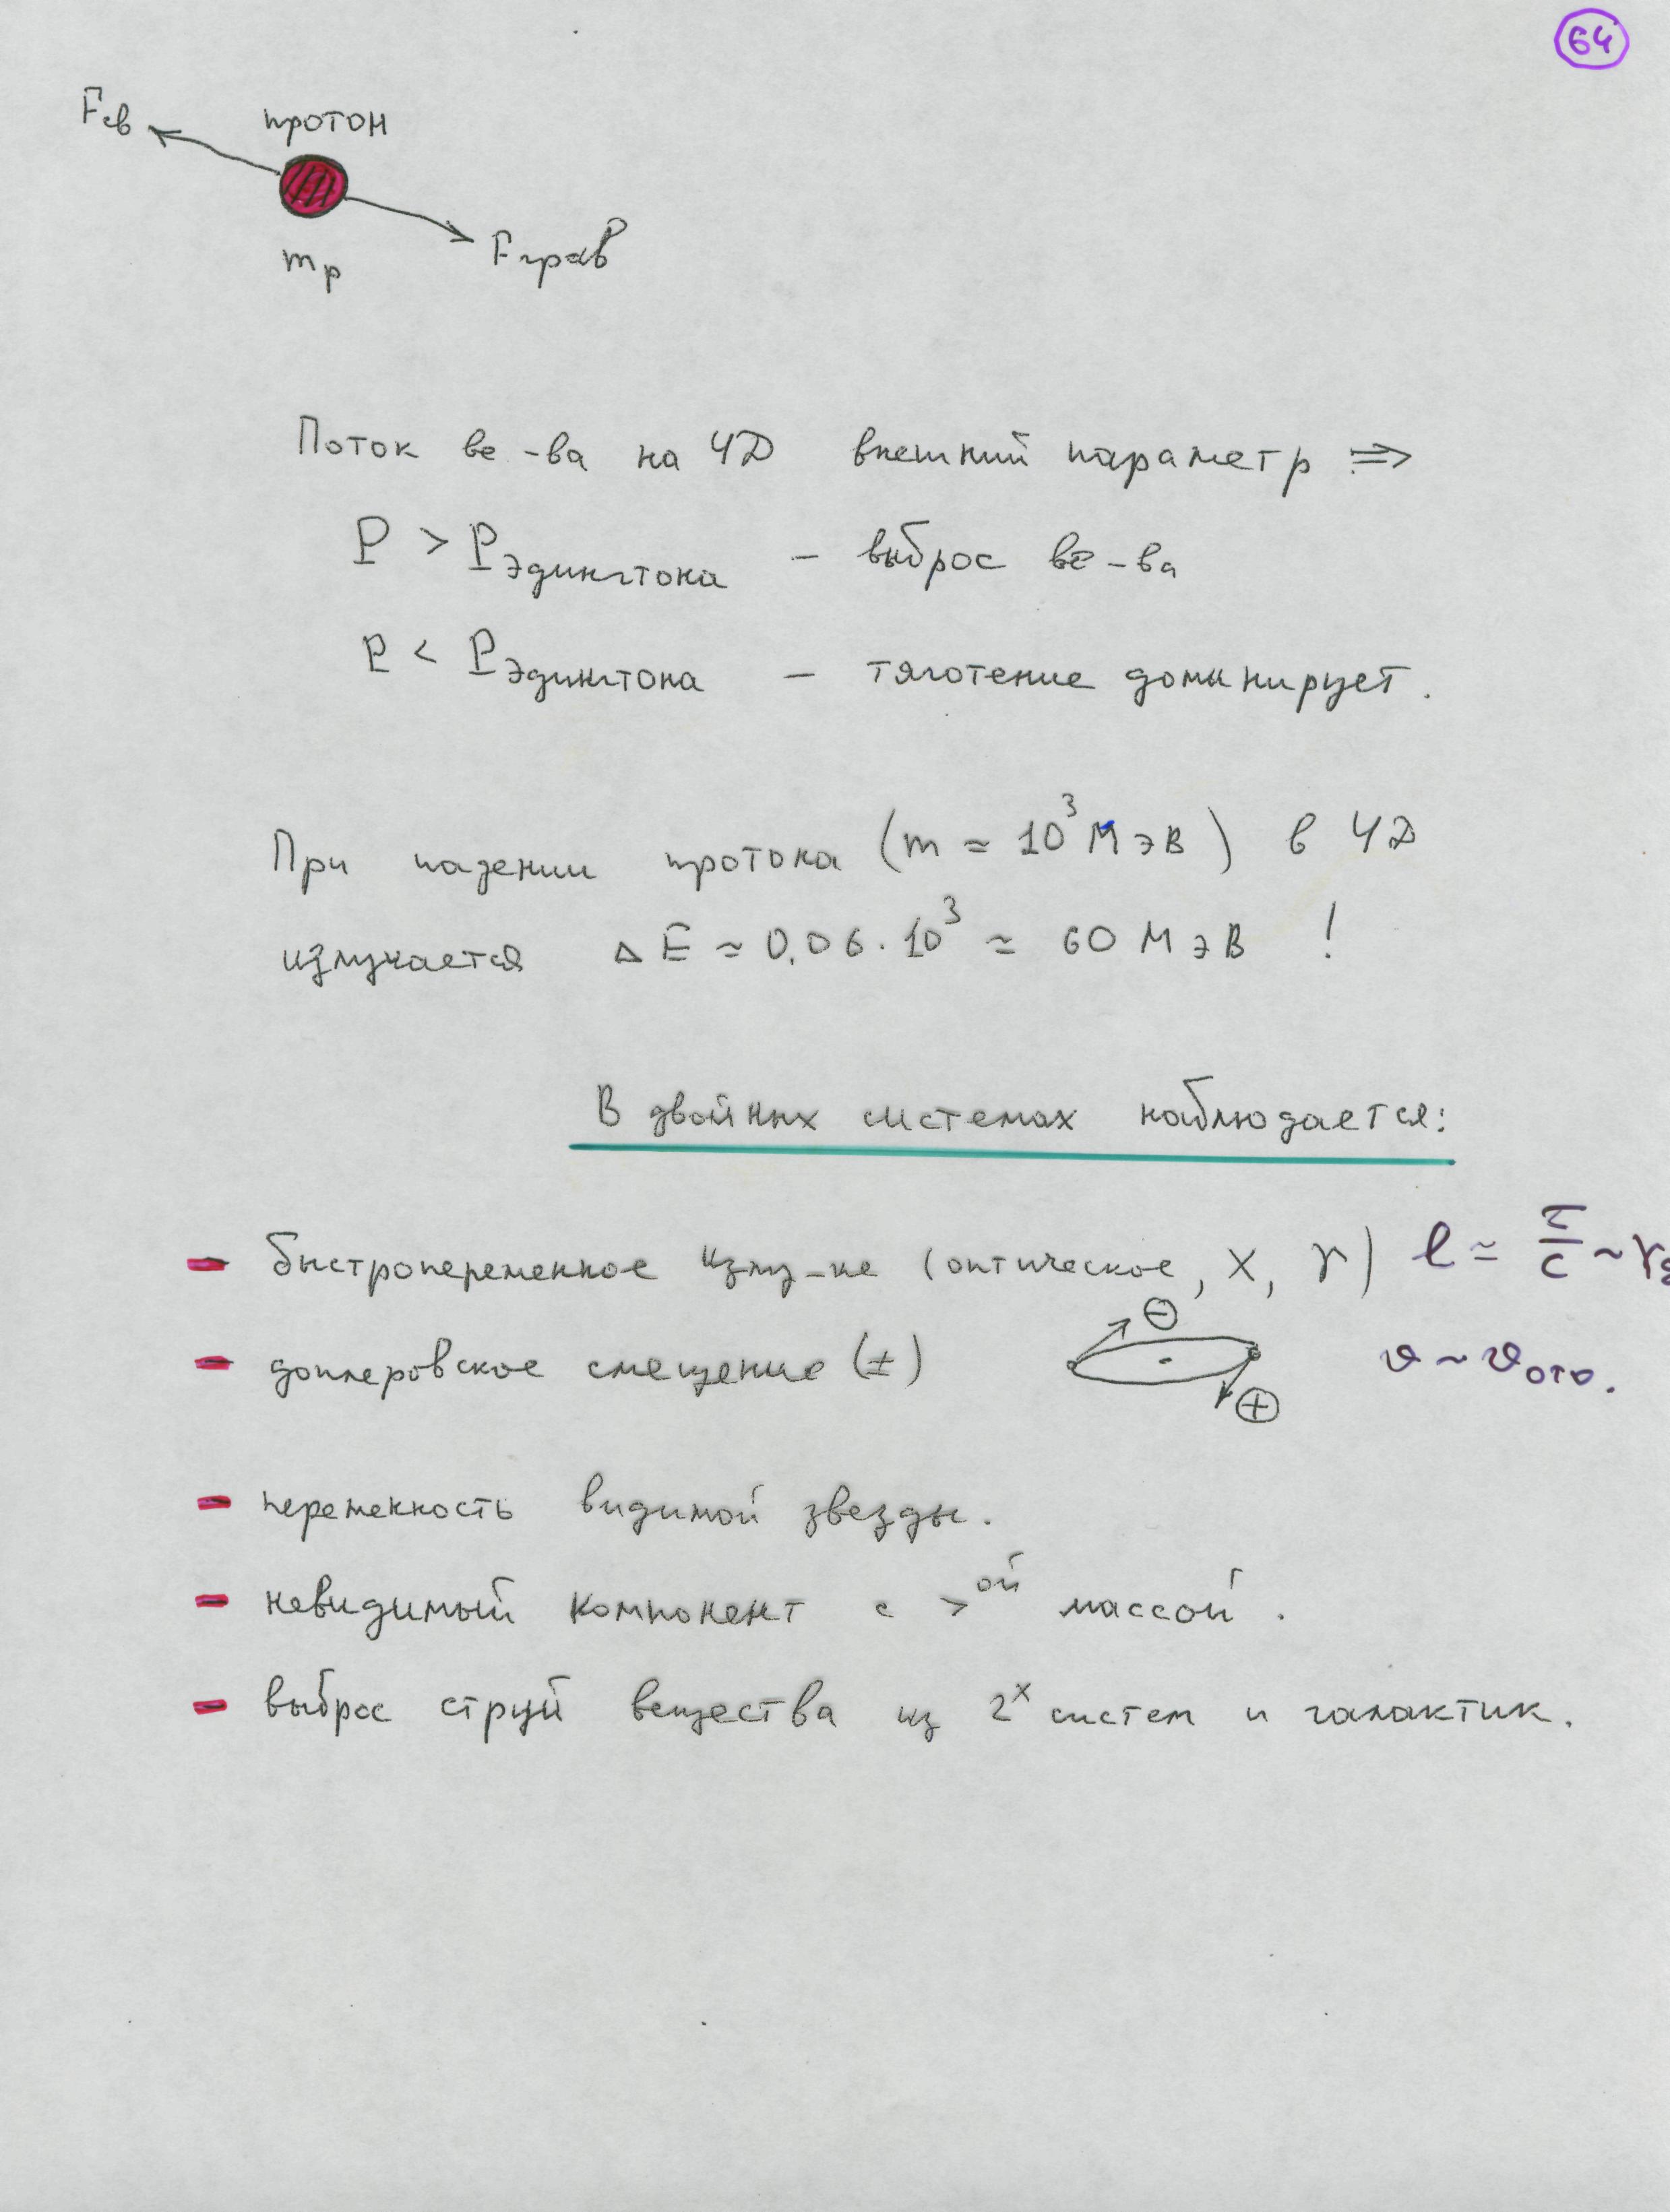 64
Fсв
протон
mp
Fграв
Поток ве-ва на ЧД внешний параметр ⇒
P > PЭдингтона – выброс ве-ва
P < PЭдингтона – тяготение доминирует.
При падении протона (m ≈ 10³ МэВ) в ЧД
излучается ΔE ≈ 0,06·10³ ≈ 60 МэВ !
В двойных системах наблюдается:
– быстропеременное излу-ие (оптическое, X, γ) l ≈ τ/c ~ rg
– доплеровское смещение (±) ⊖ ⊕ v ~ vото.
– переменность видимой звезды.
– невидимый компонент с >ой массой.
– выброс струй вещества из 2х систем и галактик.